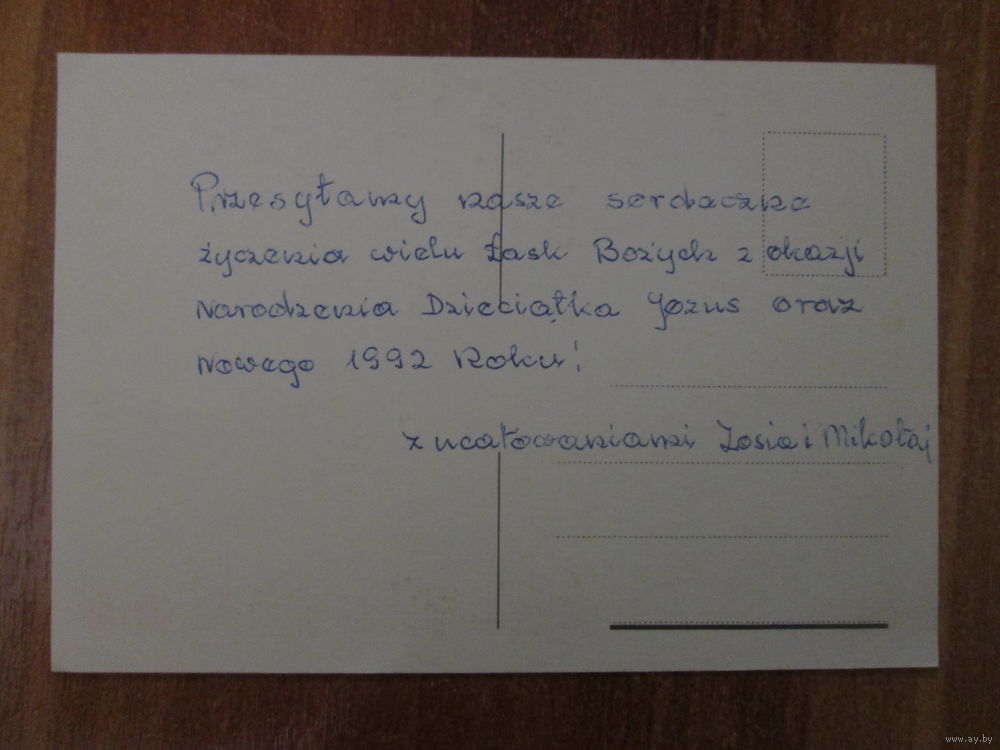 Przesyłamy nasze serdeczne
życzenia wielu Łask Bożych z okazji
Narodzenia Dzieciątka Jezus oraz
Nowego 1992 Roku!
z ucałowaniami Zosia i Mikołaj
www.ay.by